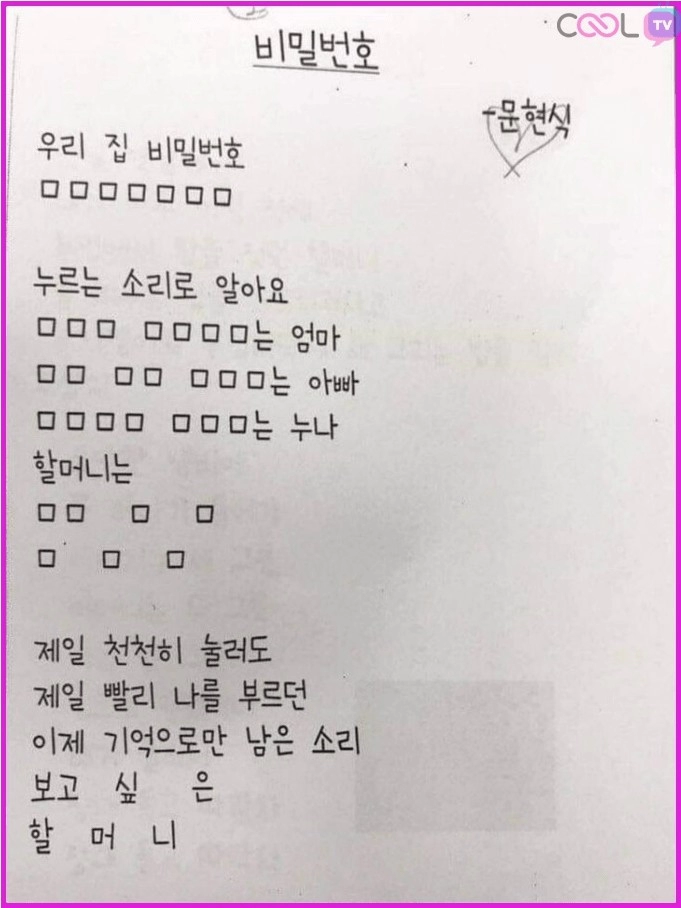 COOL TV
비밀번호
-문현식
우리 집 비밀번호
□□□□□□□
누르는 소리로 알아요
□□□ □□□□는 엄마
□□ □□ □□□는 아빠
□□□□ □□□는 누나
할머니는
□□ □ □
□ □ □
제일 천천히 눌러도
제일 빨리 나를 부르던
이제 기억으로만 남은 소리
보고 싶 은
할 머 니